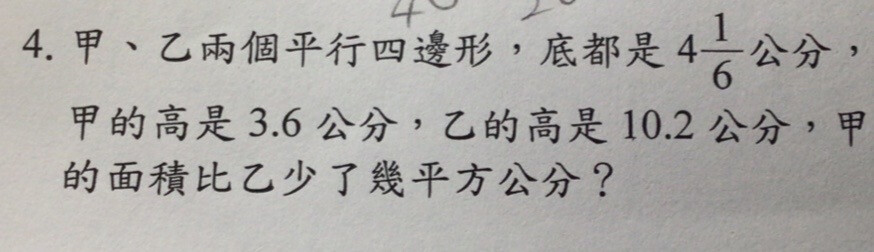 4. 甲、乙兩個平行四邊形，底都是 4 1/6 公分，
甲的高是 3.6 公分，乙的高是 10.2 公分，甲
的面積比乙少了幾平方公分？